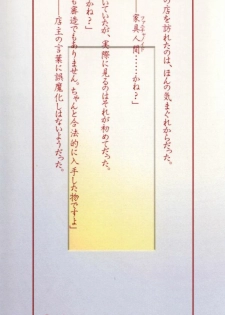 の店を訪れたのは、ほんの気まぐれからだった。
家具人間……かね?」
いていたが、実際に見るのはそれが初めてだった。
かね?」
も密造でもありません。ちゃんと合法的に入手した物ですよ」
―店主の言葉に誤魔化しはないようだった。